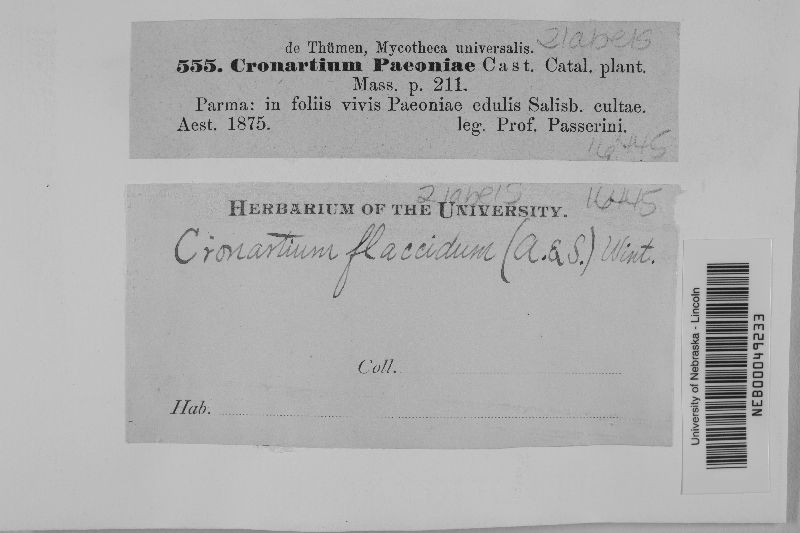 de Thümen, Mycotheca universalis.
2labels
555. Cronartium Paeoniae Cast. Catal. plant.
Mass. p. 211.
Parma: in foliis vivis Paeoniae edulis Salisb. cultae.
Aest. 1875. leg. Prof. Passerini.
16445
2labels
16445
HERBARIUM OF THE UNIVERSITY.
Cronartium flaccidum (A.&S.) Wint.
Coll.
Hab.
University of Nebraska - Lincoln
NEB00049233